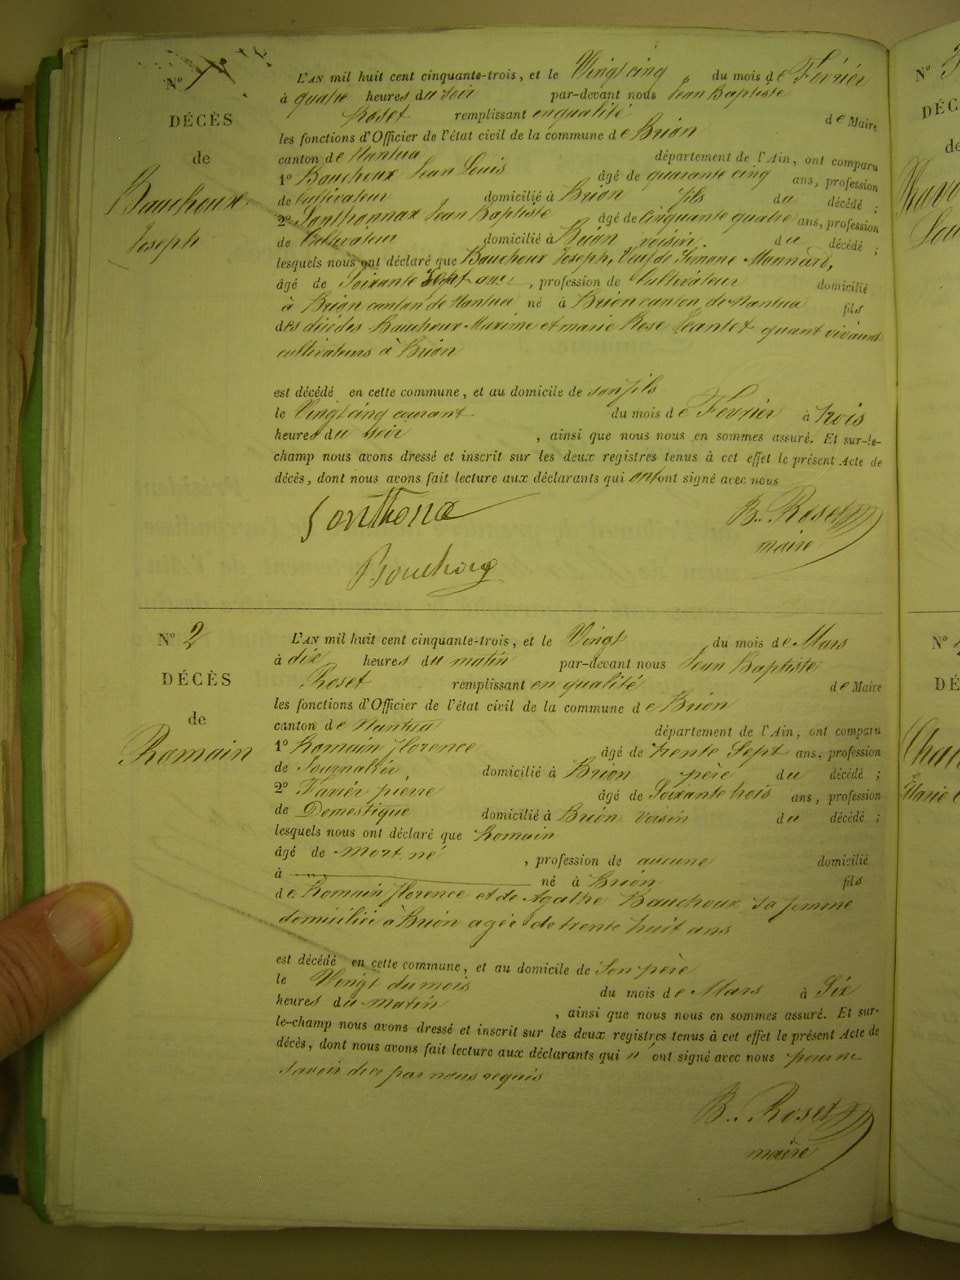 N° 1
DÉCÈS
de
Bauchoux
Joseph
L'AN mil huit cent cinquante-trois, et le Vingt cinq du mois de Février
à quatre heures du soir par-devant nous Jean Baptiste
Roset remplissant en qualité de Maire
les fonctions d'Officier de l'état civil de la commune de Brion
canton de Nantua département de l'Ain, ont comparu
1° Bauchoux Jean Louis âgé de quarante cinq ans, profession
de Cultivateur domicilié à Brion fils du décédé ;
2° Santhonnax Jean Baptiste âgé de Cinquante quatre ans, profession
de Cultivateur domicilié à Brion voisin du décédé ;
lesquels nous ont déclaré que Bauchoux Joseph, Veuf de Simone
âgé de Soixante Sept ans, profession de Cultivateur domicilié
à Brion canton de Nantua né à Brion canton de Nantua fils
des décédés Bauchoux Maxime et marie Rose quant vivants
cultivateurs à Brion
est décédé en cette commune, et au domicile de son fils
le Vingt cinq courant du mois de Février à trois
heures du soir , ainsi que nous nous en sommes assuré. Et sur-le-
champ nous avons dressé et inscrit sur les deux registres tenus à cet effet le présent Acte de
décès, dont nous avons fait lecture aux déclarants qui ont signé avec nous
Sonthona
B. Roset
maire
Bouchoux
N° 2
DÉCÈS
de
Romain
L'AN mil huit cent cinquante-trois, et le Vingt du mois de Mars
à dix heures du matin par-devant nous Jean Baptiste
Roset remplissant en qualité de Maire
les fonctions d'Officier de l'état civil de la commune de Brion
canton de Nantua département de l'Ain, ont comparu
1° Romain florence âgé de trente Sept ans, profession
de Journallié, domicilié à Brion père du décédé ;
2° Tavier pierre âgé de Soixante trois ans, profession
de Domestique domicilié à Brion voisin du décédé ;
lesquels nous ont déclaré que Romain
âgé de mort né , profession de aucune domicilié
à né à Brion fils
de Romain florence et de Agathe Bauchoux, sa femme
domiciliée a Brion agée de trente huit ans
est décédé en cette commune, et au domicile de Son père
le Vingt du mois du mois de Mars à Six
heures du matin , ainsi que nous nous en sommes assuré. Et sur-
le-champ nous avons dressé et inscrit sur les deux registres tenus à cet effet le présent Acte de
décès, dont nous avons fait lecture aux déclarants qui n'ont signé avec nous pour ne
Savoir de ce par nous requis
B. Roset
maire
N° 3
DÉC
de
N°
DÉ